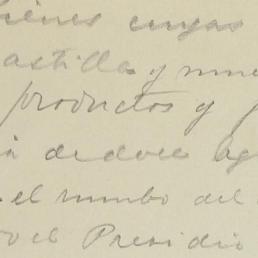 bienes cuyas
astilla y nue
productos y
a de doce ag
el rumbo del
el Presidio